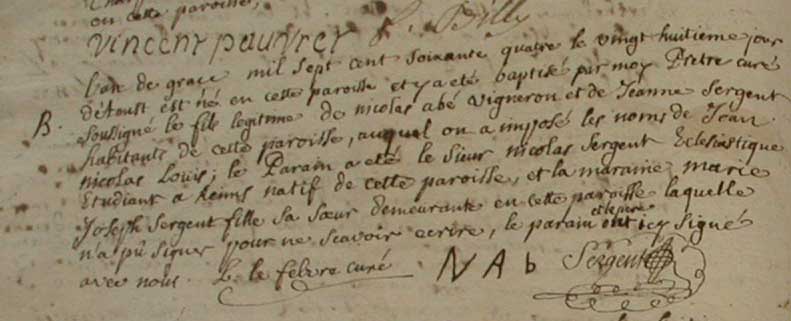 ou cette paroisse,
vincent pauvret L. Billy
L'an de grace mil sept cent soixante quatre le vingt huitieme jour
d'Aoust est né en cette paroisse et y a été baptisé par moy Pretre curé
B. soussigné le fils legitime de nicolas abé vigneron et de Jeanne Sergent
habitants de cette paroisse, auquel on a imposé les noms de Jean
nicolas Louis; le Parain a été le sieur nicolas Sergent Eclesiastique
Etudiant a Reims natif de cette paroisse, et la maraine marie
Joseph Sergent fille sa sœur demeurante en cette paroisse laquelle
n'a pû signer pour ne scavoir ecrire, le parain et le pere ont icy signé
avec nous. L. le febvre curé NAb Sergent